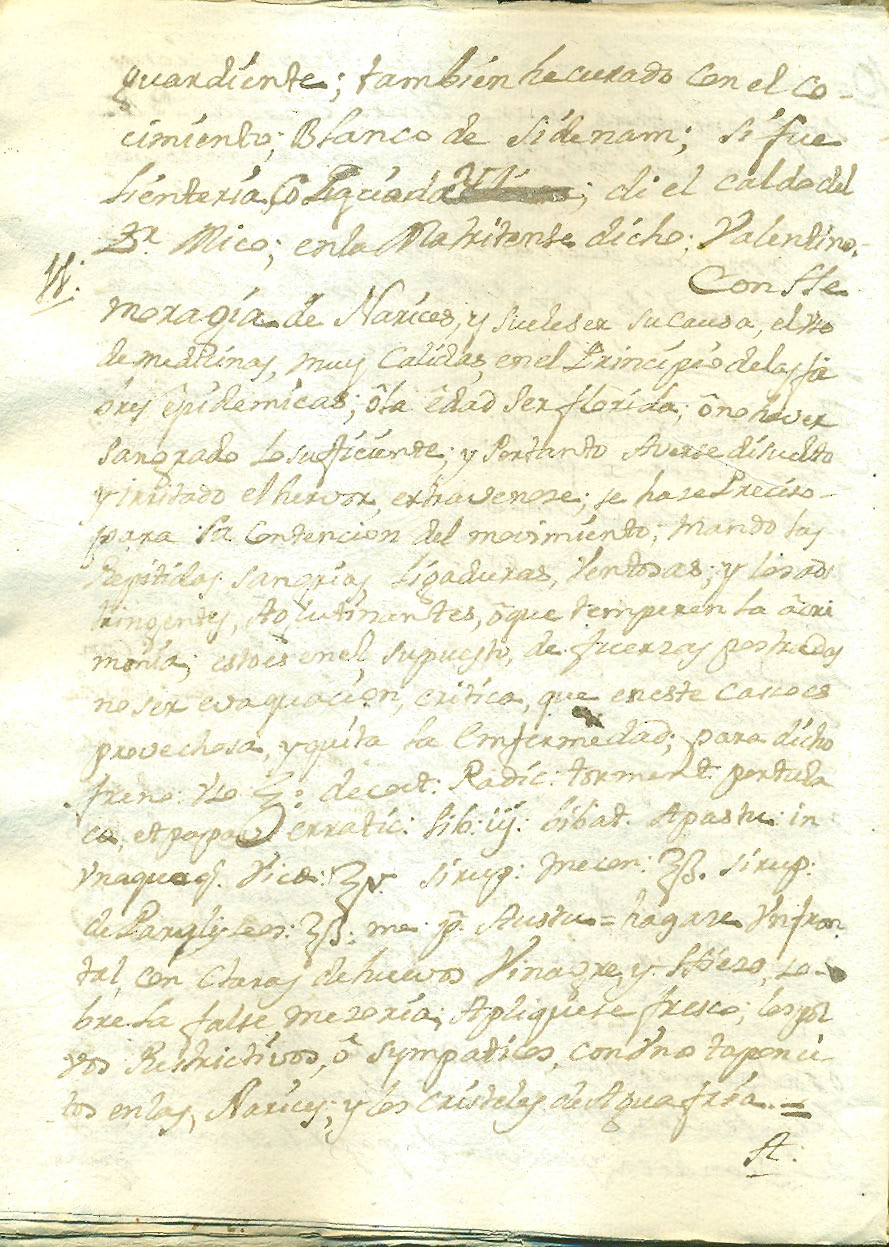 guardiente; tambien he curado con el co-
cimiento, Blanco de Sidenam; si fue
lienteria, ô Liquida; di el caldo del
Dr. Mico; en la Matritense dicho; Valentino.
Con He
moragia de Narices, y suele ser su causa, el Vso
de medisinas, muy Calidas, en el Principio de las fa
ôres êpidemicas; ôla êdad ser florida; ôno haver
sangrado lo suficiente; y Portanto Averse disuelto
y irritado el hervor, extravenose; se hase Preciso-
para la Contencion del movimiento; mando las
Repitidas sangrias, Ligaduras, Ventosas; y los ads
tringentes, Aglutinantes, ôque temperen la âcri
monia; estoes en el supuesto, de fuerzas postradas
no ser evaquacion, critica, que en este caso es
provechosa, y quita la Enfermedad; para dicho
freno: Vso decoct: Radic: torment: portula
ca, et papav erratic: lib: iij: bibat. A pastu: in
Vnaquaq. Vice: ℥v. sirup: mecon: ℥ß. sirup:
de ℥ß: me Austu = hagase Vn fron
tal, con Claras de huevos Vinagre, y Hieso, so-
bre la false, mesoria; Apliquese fresco; los pol
vos Restrictivos, ô sympaticos, con Vnos taponci-
tos en las, Narices; y los Cristeles de Agua fria. =
A.